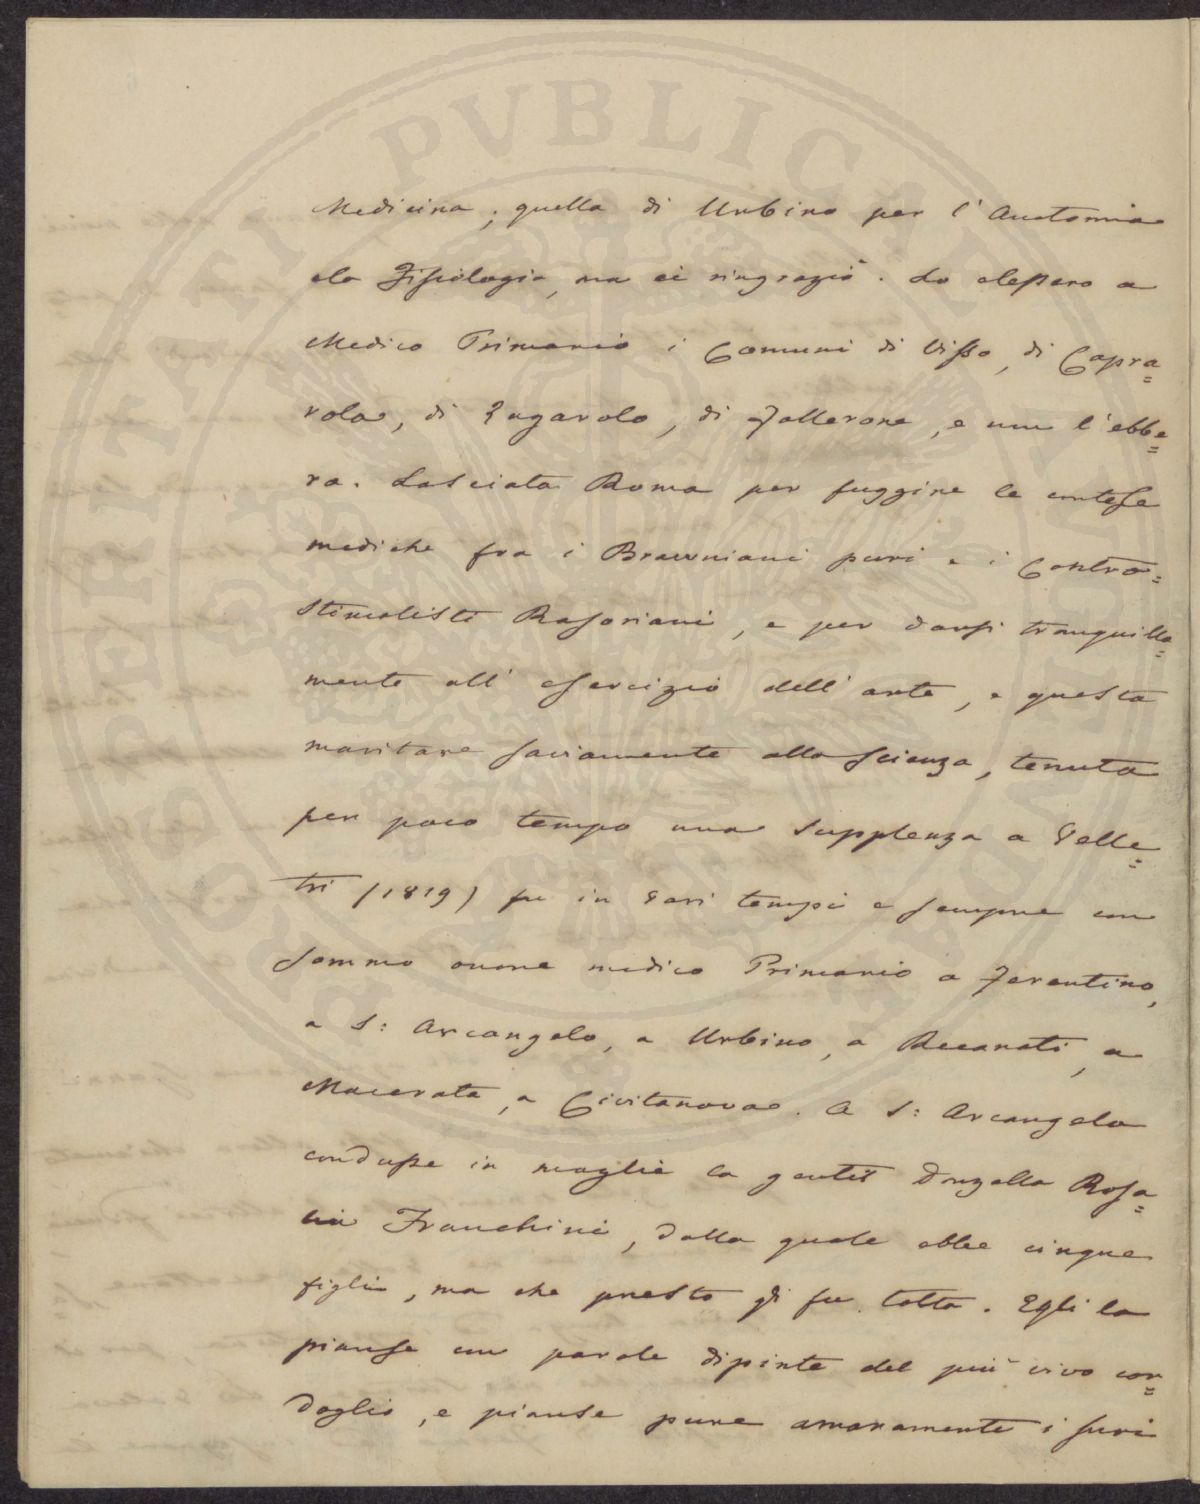 Medicina; quella di Urbino per l'Anatomia
e la Fisiologia, ma ei ringraziò. Lo elessero a
Medico Primario i Comuni di Visso, di Capra=
rola, di Zagarolo, di Fallerone, e non l'ebbe=
ro. Lasciata Roma per fuggire le contese
mediche fra i Brawniani puri e i Contro=
stimolisti Rasoriani, e per darsi tranquilla=
mente all'esercizio dell'arte, e questa
maritare saviamente alla scienza, tenuta
per poco tempo una supplenza a Velle=
tri (1819) fu in vari tempi e sempre con
sommo onore medico Primario a Ferentino,
a S: Arcangelo, a Urbino, a Recanati, a
Macerata, a Civitanova. A S: Arcangelo
condusse in moglie la gentil donzella Rosa=
Franchini, dalla quale ebbe cinque
figli, ma che presto gli fu tolta. Egli la
pianse con parole dipinte del più vivo cor=
doglio, e pianse pure amaramente i suoi
PROSPERITATI PVBLICAE